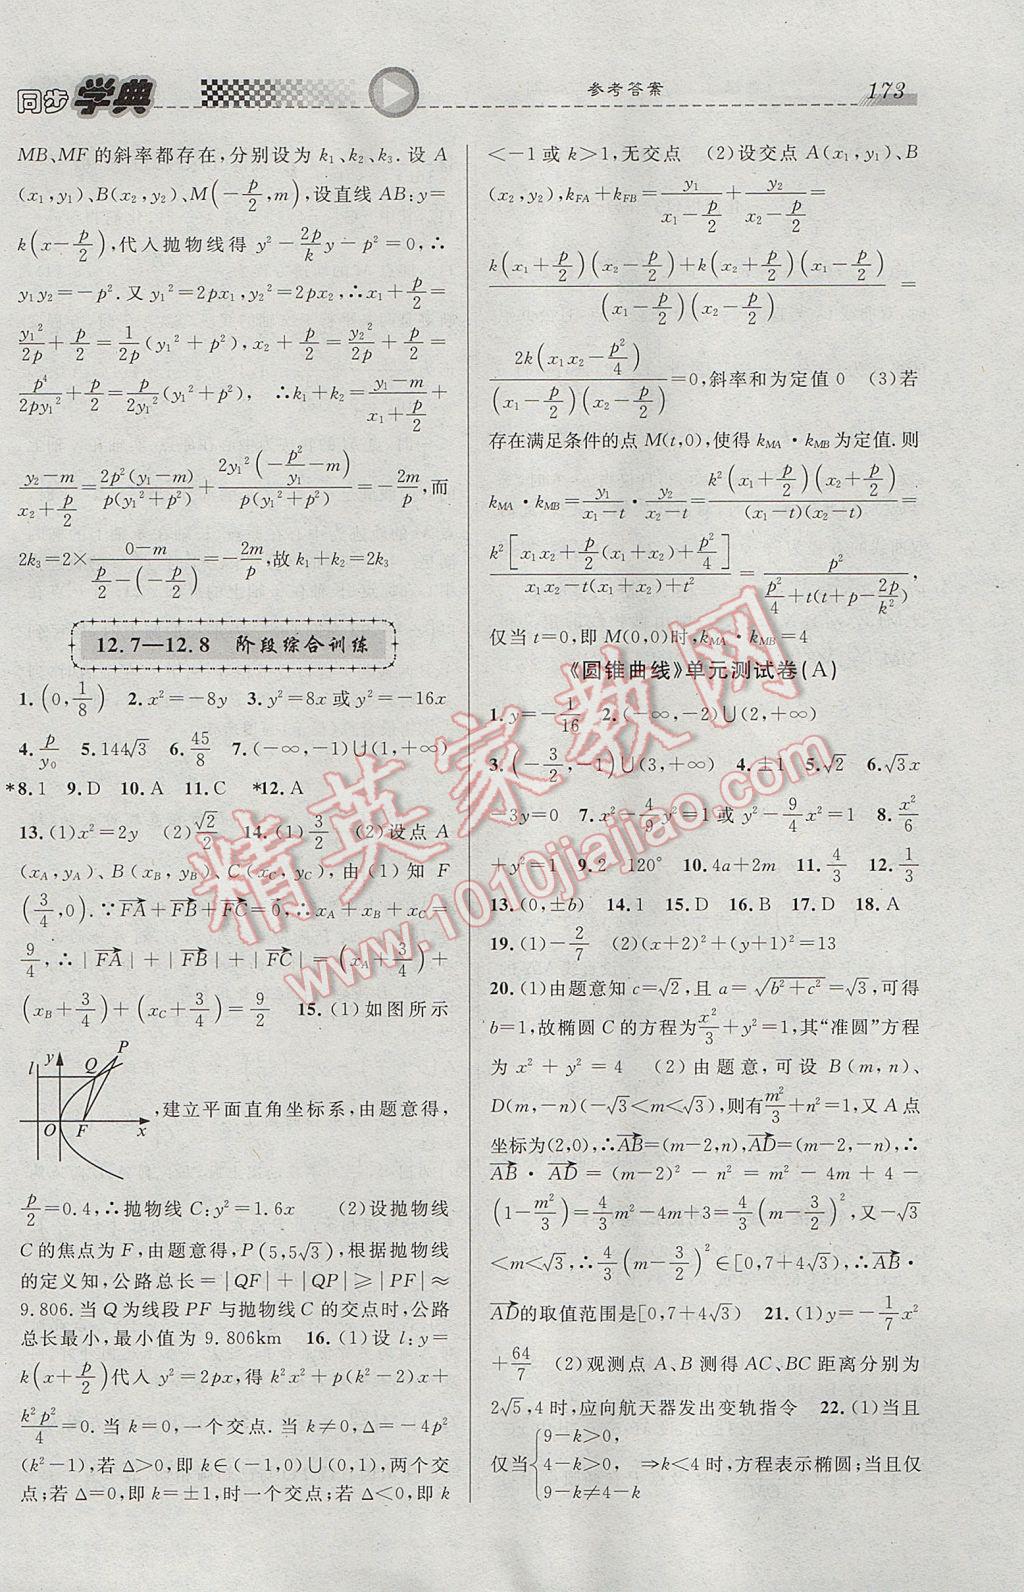 同步学典
参考答案
173
MB、MF 的斜率都存在,分别设为 k₁、k₂、k₃.设 A
(x₁,y₁)、B(x₂,y₂)、M(-p/2,m),设直线 AB:y=
k(x-p/2),代入抛物线得 y²-2p/k y-p²=0,∴
y₁y₂=-p².又 y₁²=2px₁,y₂²=2px₂,∴x₁+p/2=
y₁²/2p+p/2=1/2p(y₁²+p²),x₂+p/2=y₂²/2p+p/2=
p⁴/2py₁²+p/2=p/2y₁²(y₁²+p²), ∴k₁+k₂=(y₁-m)/(x₁+p/2)+
(y₂-m)/(x₂+p/2)=2p²(y₁-m)/p(y₁²+p²)+2y₁²(-p²/y₁-m)/p(y₁²+p²)=-2m/p,而
2k₃=2×(0-m)/(p/2-(-p/2))=-2m/p,故 k₁+k₂=2k₃
12.7—12.8 阶段综合训练
1.(0,1/8) 2.x²=-8y 3.y²=8x 或 y²=-16x
4.p/y₀ 5.144√3 6.45/8 7.(-∞,-1)∪(1,+∞)
*8.1 9.D 10.A 11.C *12.A
13.(1)x²=2y (2)√2/2 14.(1)3/2 (2)设点 A
(x_A,y_A)、B(x_B,y_B)、C(x_C,y_C),由(1)知 F
(3/4,0).∵FA→+FB→+FC→=0,∴x_A+x_B+x_C=
9/4,∴|FA→|+|FB→|+|FC→|=(x_A+3/4)+
(x_B+3/4)+(x_C+3/4)=9/2 15.(1)如图所示
l y Q P O F x
,建立平面直角坐标系,由题意得,
p/2=0.4,∴抛物线 C:y²=1.6x (2)设抛物线
C 的焦点为 F,由题意得,P(5,5√3),根据抛物线
的定义知,公路总长=|QF|+|QP|≥|PF|≈
9.806.当 Q 为线段 PF 与抛物线 C 的交点时,公路
总长最小,最小值为 9.806km 16.(1)设 l:y=
k(x+p/2)代入 y²=2px,得 k²x²+p(k²-2)x+
k²p²/4=0.当 k=0,一个交点.当 k≠0,Δ=-4p²
(k²-1),若 Δ>0,即 k∈(-1,0)∪(0,1),两个交
点;若 Δ=0,即 k=±1,时一个交点;若 Δ<0,即 k
<-1 或 k>1,无交点 (2)设交点 A(x₁,y₁)、B
(x₂,y₂),k_FA+k_FB=y₁/(x₁-p/2)+y₂/(x₂-p/2)=
[k(x₁+p/2)(x₂-p/2)+k(x₂+p/2)(x₁-p/2)]/[(x₁-p/2)(x₂-p/2)]=
2k(x₁x₂-p²/4)/[(x₁-p/2)(x₂-p/2)]=0,斜率和为定值 0 (3)若
存在满足条件的点 M(t,0),使得 k_MA·k_MB为定值.则
k_MA·k_MB=y₁/(x₁-t)·y₂/(x₂-t)=k²(x₁+p/2)(x₂+p/2)/(x₁-t)(x₂-t)=
k²[x₁x₂+p/2(x₁+x₂)+p²/4]/[x₁x₂-t(x₁+x₂)+t²]=p²/[p²/4+t(t+p-2p/k²)],
仅当 t=0,即 M(0,0)时,k_MA·k_MB=4
《圆锥曲线》单元测试卷(A)
1.y=-1/16 2.(-∞,-2)∪(2,+∞)
3.(-3/2,-1)∪(3,+∞) 4.±1 5.√2 6.√3x
-3y=0 7.x²-4/9y²=1 或 y²-9/4x²=1 8.x²/6
+y²=1 9.2 120° 10.4a+2m 11.4/3 12.1/3
13.(0,±b) 14.1 15.D 16.B 17.D 18.A
19.(1)-2/7 (2)(x+2)²+(y+1)²=13
20.(1)由题意知 c=√2,且 a=√(b²+c²)=√3,可得
b=1,故椭圆 C 的方程为x²/3+y²=1,其“准圆”方程
为 x²+y²=4 (2)由题意,可设 B(m,n)、
D(m,-n)(-√3<m<√3),则有m²/3+n²=1,又 A 点
坐标为(2,0),∴AB→=(m-2,n),AD→=(m-2,-n),∴
AB→·AD→=(m-2)²-n²=m²-4m+4-
(1-m²/3)=4/3m²-4m+3=4/3(m-3/2)²,又-√3
<m<√3,∴4/3(m-3/2)²∈[0,7+4√3),∴AB→·
AD→的取值范围是[0,7+4√3) 21.(1)y=-1/7x²
+64/7 (2)观测点 A、B 测得 AC、BC 距离分别为
2√5,4 时,应向航天器发出变轨指令 22.(1)当且
仅当{9-k>0, 4-k>0, 9-k≠4-k ⇒k<4 时,方程表示椭圆;当且仅
精英家教网
www.1010jiajiao.com